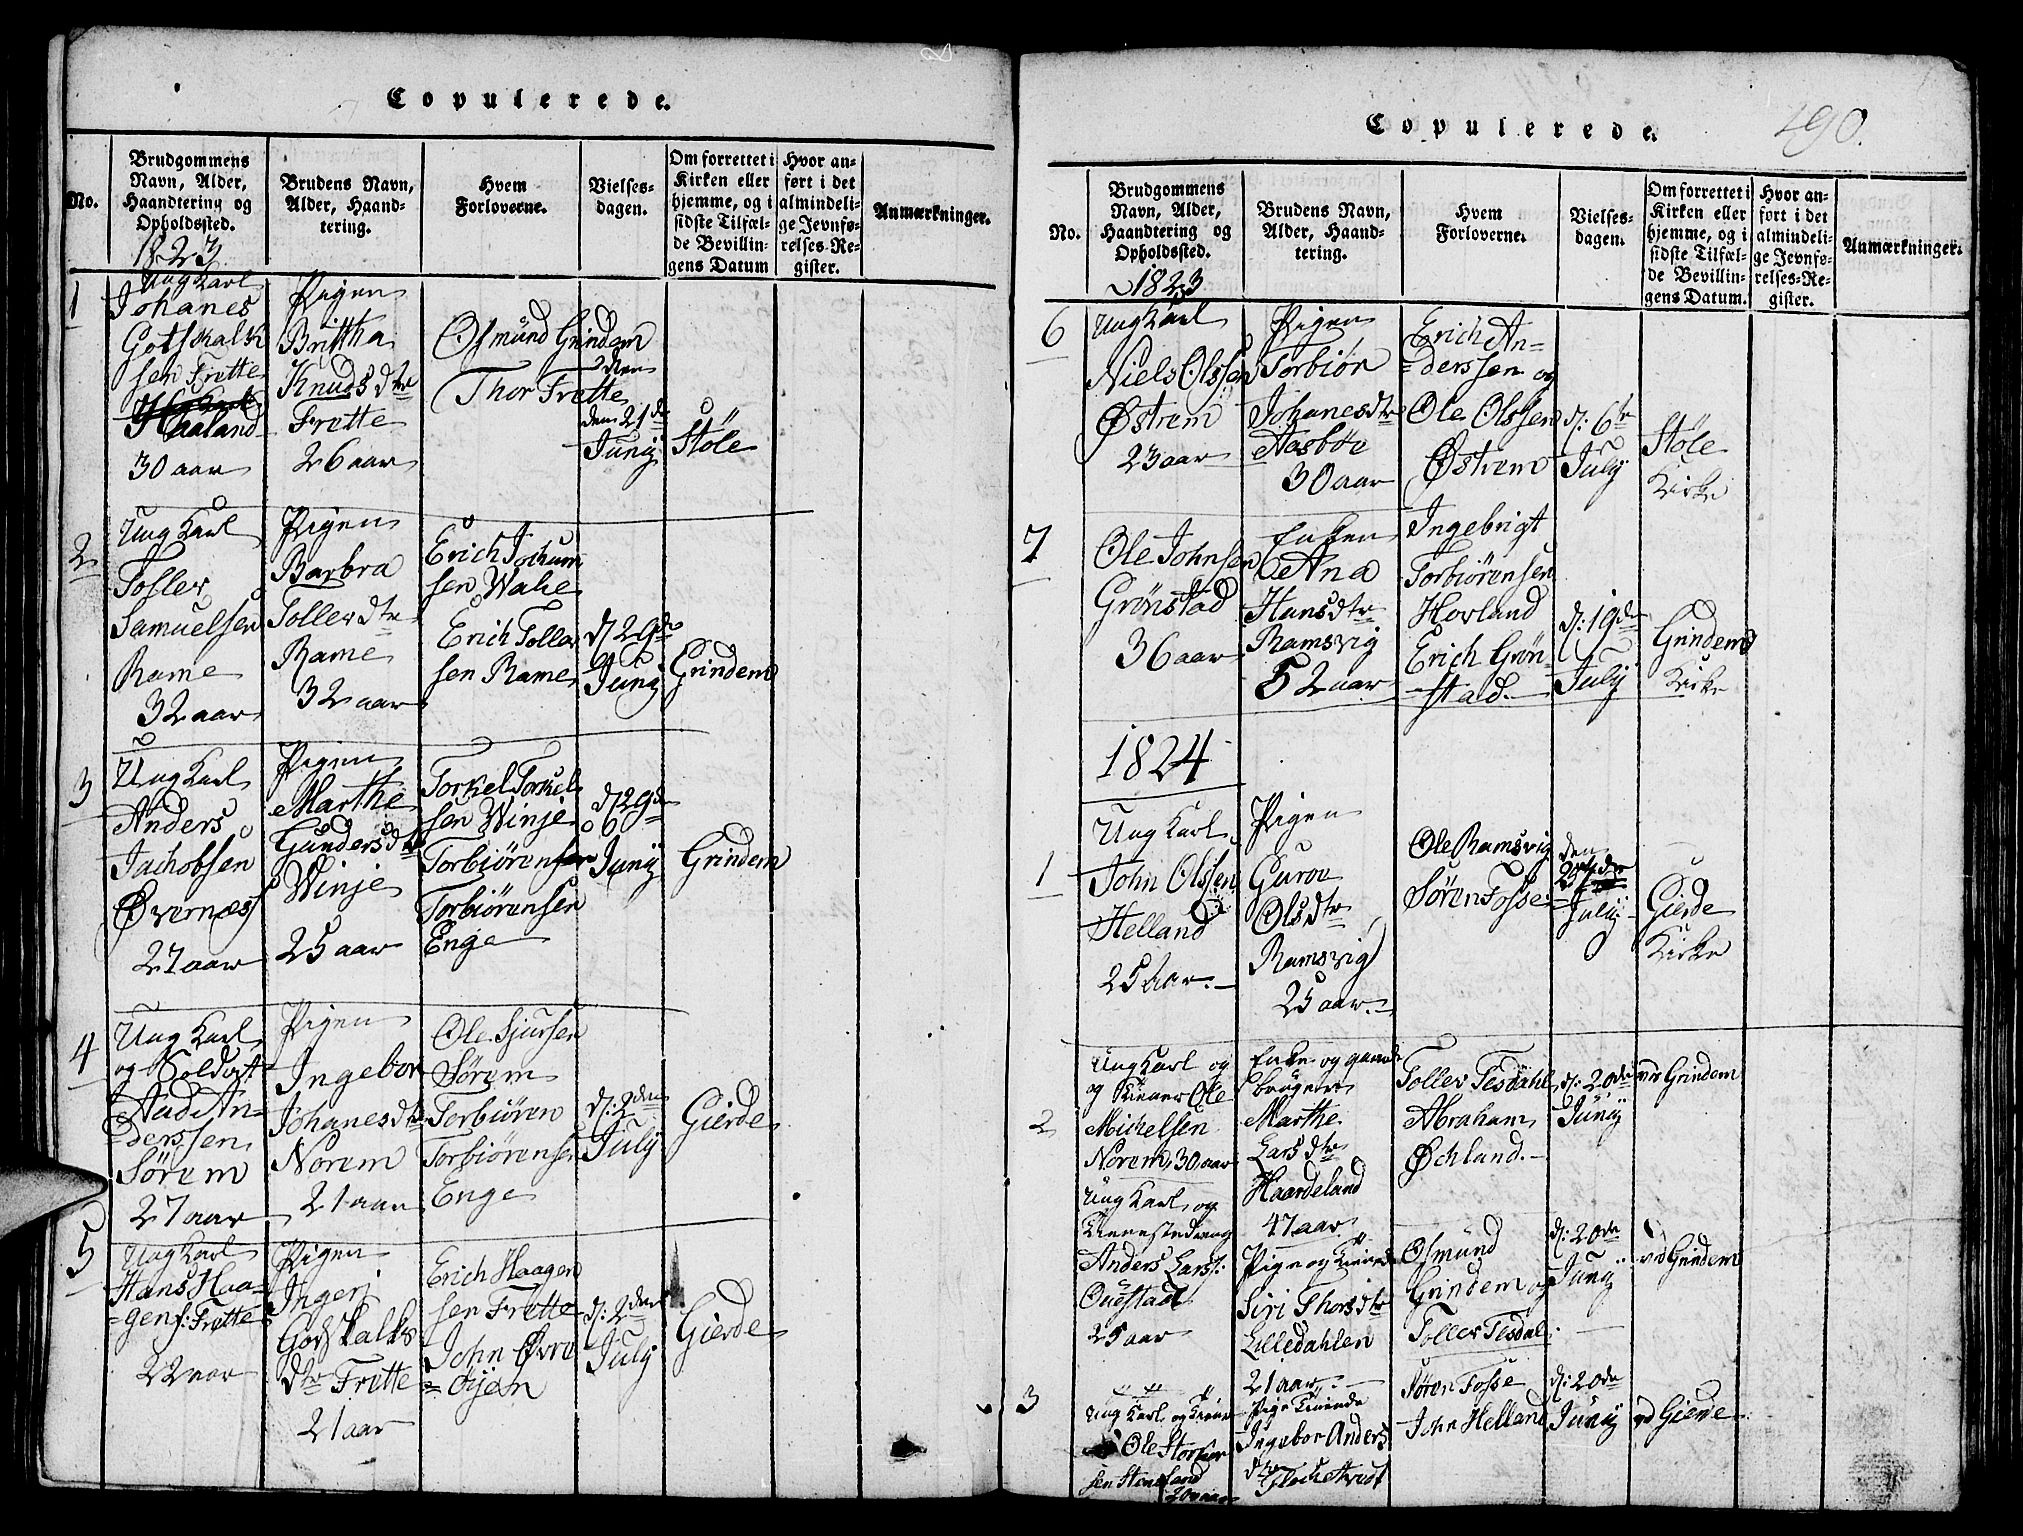 Copulerede.
No.
Brudgommens
Navn, Alder,
Haandtering og
Opholdssted.
1823
Brudens Navn,
Alder, Haand-
tering.
Hvem
Forloverne.
Vielses-
dagen.
Om forrettet i
Kirken eller
hjemme, og i
sidste Tilfæl-
de Bevillin-
gens Datum
Hvor an-
ført i det
almindeli-
ge Jevnfø-
relses-Re-
gister.
Anmærkninger.
1
Ung Karl
Johanes
Gotskalk
sen Frette
Haaland
30 aar
Pigen
Brittha
Knudsdtr
Frette
26 aar
Osmund Grindem
Thor Frette
den 21de
Junij
Støle
2
Ung Karl
Toller
Samuelsen
Rame
32 aar
Pigen
Barbra
Tollerdtr
Rame
32 aar
Erich Jochum
sen Wake
Erich Toller
sen Rame
d: 29de
Junij
Grindem
3
Ung Karl
Anders
Jachobsen
Øvernæss
27 aar
Pigen
Marthe
Gundersdtr
Winje
25 aar
Torkel Torkel
sen Winje
Torbiørensen
Torbiørensen
Enge
d: 29de
Junij
Grindem
4
Ung Karl
og Soldat
Aad An-
derssen
Sørem
27 aar
Pigen
Ingebor
Johanesdtr
Norem
21 aar
Ole Sjursen
Sørem
Torbiøren
Torbiørensen
Enge
d: 2den
July
Gierde
5
Ung Karl
Hans Haa-
gens: Frette
22 aar
Pigen
Ingeri
Gotskalks
dtr Frette
21 aar
Erich Haagen
sen Frette
John Øvre
d: 2den
July
Gierde
Copulerede.
190.
No.
Brudgommens
Navn, Alder,
Haandtering og
Opholdssted.
1823
Brudens Navn,
Alder, Haand-
tering.
Hvem
Forloverne.
Vielses-
dagen.
Om forrettet i
Kirken eller
hjemme, og i
sidste Tilfæl-
de Bevillin-
gens Datum.
Hvor an-
ført i det
almindeli-
ge Jevnfø-
relses-Re-
gister.
Anmærkninger.
6
Ung Karl
Niels Olssen
Østrem
23 aar
Pigen
Torbiør
Johanesdtr
Aasbøe
30 aar
Erich An-
derssen og
Ole Olssen
Østrem
d: 6te
July
Støle
Kirke
7
Ole Johnsen
Grønstad
36 aar
Enken
Ana
Hansdtr
Ramsvig
52 aar
Ingebrigt
Torbiørensen
Hovland
Erich Grøn-
stad.
d: 19de
July
Grindem
Kirke
1824
1
Ung Karl
John Olssen
Helland
25 Aar.
Pigen
Guroe
Olsdtr
Ramsvig
25 aar.
Ole Ramsvig
Søren Fosse
den
July
Gierde
Kirke
2
Ung Karl og
Ole
Michelsen
Norem, 30 aar
Enke og gaard
bruger
Marthe
Larsdtr
Haardeland
47 aar
Toller Tesdahl
Abraham
Øchland.
d: 20de
Junij
ved Grindem
Ung Karl og
Anders Lars:
Ouestad
25 aar
Pige og
Siri Thorsdtr
Lilledahlen
21 aar.
Osmund
Grindem og
Toller Tesdal.
d: 20de
Junij
ved Grindem
3
Ung Karl og
Ole
Pige
Ingebor Anders
dtr
Søren Fosse
John Helland
d: 20de
Junij
ved Gierde